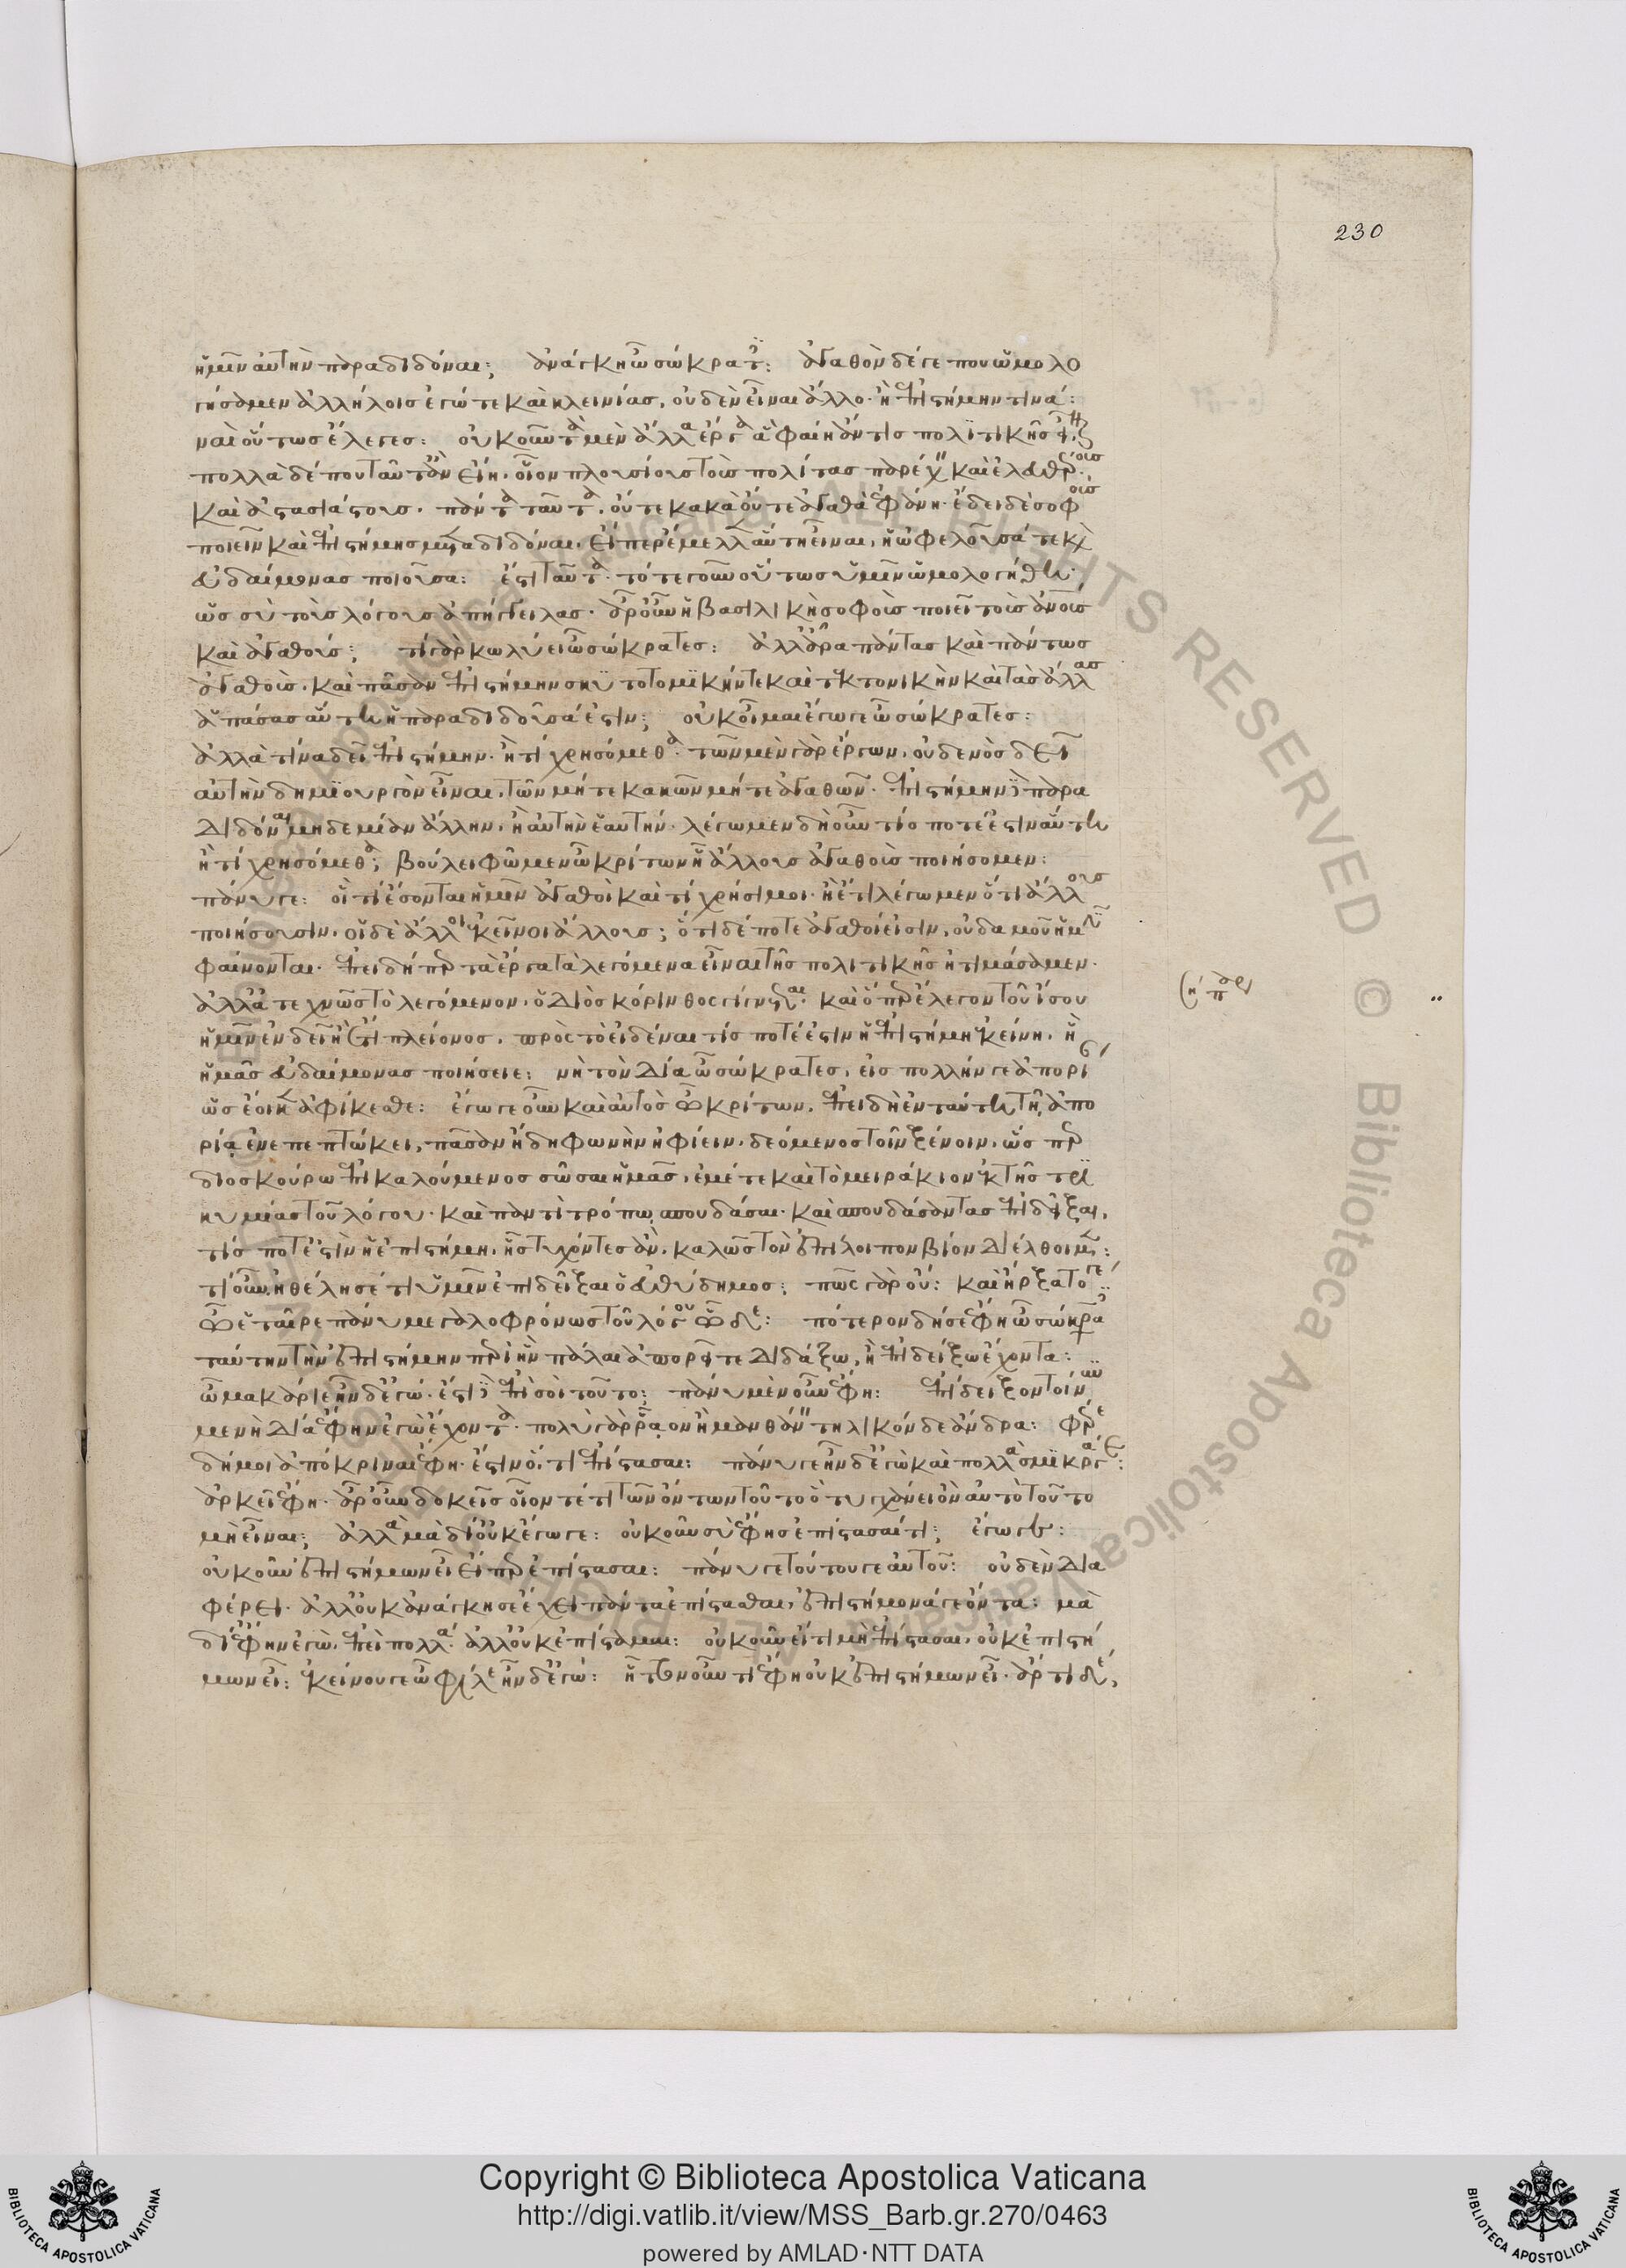 230
ἡμῖν αὐτὴν παραδιδόναι; ἀνάγκη ὦ σώκρατες: ἀγαθὸν δέ γέ που ὡμολο
γήσαμεν ἀλλήλοις ἐγώ τε καὶ κλεινίας, οὐδὲν εἶναι ἄλλο· ἢ ἐπιστήμην τινά:
ναὶ οὕτως ἔλεγες: οὐκοῦν τὰ μὲν ἄλλα ἔργα ἃ φαίη ἄν τις πολιτικῆς εἶναι·
πολλὰ δέ που ταῦτ' ἂν εἴη· οἷον πλουσίους τοὺς πολίτας παρέχειν καὶ ἐλευθέρους·
καὶ ἀστασιάστους· πάντα ταῦτα, οὔτε κακὰ οὔτε ἀγαθὰ ἐφάνη· ἔδει δὲ σοφοὺς
ποιεῖν καὶ ἐπιστήμης μεταδιδόναι, εἴπερ ἔμελλεν αὕτη εἶναι, ἡ ὠφελοῦσά τε καὶ
εὐδαίμονας ποιοῦσα: ἔστι ταῦτα· τότε γοῦν οὕτως ὑμῖν ὡμολογήθη·
ὡς σὺ τοὺς λόγους ἀπήγγειλας· ἆρ' οὖν ἡ βασιλικὴ σοφοὺς ποιεῖ τοὺς ἀνθρώπους
καὶ ἀγαθούς; τί γὰρ κωλύει ὦ σώκρατες: ἀλλ' ἆρα πάντας καὶ πάντως
ἀγαθοὺς· καὶ πᾶσαν ἐπιστήμην σκυτοτομικήν τε καὶ τεκτονικὴν καὶ τὰς ἄλλας
ἁπάσας αὕτη ἡ παραδιδοῦσά ἐστιν; οὐκ οἶμαι ἔγωγε ὦ σώκρατες:
ἀλλὰ τίνα δεῖ ἐπιστήμην· ἢ τί χρησόμεθα· τῶν μὲν γὰρ ἔργων, οὐδενὸς δεῖ
αὐτὴν δημιουργὸν εἶναι, τῶν μήτε κακῶν μήτε ἀγαθῶν· ἐπιστήμην δὲ παρα
διδόναι μηδεμίαν ἄλλην, ἢ αὐτὴν ἑαυτήν· λέγωμεν δὴ οὖν τίς ποτέ ἐστιν αὕτη
ἢ τί χρησόμεθα; βούλει φῶμεν ὦ κρίτων ᾗ ἄλλους ἀγαθοὺς ποιήσομεν:
πάνυ γε: οἳ τί ἔσονται ἡμῖν ἀγαθοὶ καὶ τί χρήσιμοι· ἢ ἔτι λέγωμεν ὅτι ἄλλους
ποιήσουσιν, οἱ δὲ ἄλλοι ἐκεῖνοι ἄλλους; ὅτι δέ ποτε ἀγαθοί εἰσιν, οὐδαμοῦ ἡμῖν
φαίνονται· ἐπειδήπερ τὰ ἔργα τὰ λεγόμενα εἶναι τῆς πολιτικῆς ἠτιμάσαμεν·
ἀλλὰ ἀτεχνῶς τὸ λεγόμενον· ὁ Διὸς κόρινθος γίγνεται· καὶ ὅπερ ἔλεγον τοῦ ἴσου
ἡμῖν ἐνδεῖ ἢ ἔτι πλείονος, πρὸς τὸ εἰδέναι τίς ποτέ ἐστιν ἡ ἐπιστήμη ἐκείνη, ἣ
ἡμᾶς εὐδαίμονας ποιήσειε: νὴ τὸν Δία ὦ σώκρατες, εἰς πολλήν γε ἀπορίαν
ὡς ἔοικεν ἀφίκεσθε: ἔγωγε οὖν καὶ αὐτὸς ὦ κρίτων, ἐπειδὴ ἐν ταύτῃ τῇ ἀπο
ρίᾳ ἐνεπεπτώκει, πᾶσαν ἤδη φωνὴν ἠφίειν, δεόμενος τοῖν ξένοιν, ὥσπερ
διοσκούρω ἐπικαλούμενος σῶσαι ἡμᾶς, ἐμέ τε καὶ τὸ μειράκιον ἐκ τῆς τρι
κυμίας τοῦ λόγου· καὶ παντὶ τρόπῳ σπουδάσαι· καὶ σπουδάσαντας ἐπιδεῖξαι,
τίς ποτέ ἐστὶν ἡ ἐπιστήμη, ἧς τυχόντες ἂν, καλῶς τὸν ἐπίλοιπον βίον διέλθοιμεν:
τί οὖν, ἠθέλησέ τι ὑμῖν ἐπιδεῖξαι ὁ εὐθύδημος: πῶς γὰρ οὔ: καὶ ἤρξατό γε
ὦ ἑταῖρε πάνυ μεγαλοφρόνως τοῦ λόγου ὧδε: πότερον δή σε ἔφη ὦ σώκρατες
ταύτην τὴν ἐπιστήμην περὶ ἣν πάλαι ἀπορεῖτε διδάξω, ἢ ἐπιδείξω ἔχοντα:
ὦ μακάριε ἦν δ' ἐγώ· ἔστι δὲ ἐπὶ σοὶ τοῦτο; πάνυ μὲν οὖν ἔφη: ἐπίδειξον τοίνυν
με νὴ Δία ἔφην ἐγὼ ἔχοντα· πολὺ γὰρ ῥᾷον ἢ μανθάνειν τηλικόνδε ἄνδρα: φέρε
δή μοι ἀπόκριναι ἔφη· ἔστιν ὅ, τι ἐπίστασαι: πάνυ γε ἦν δ' ἐγὼ καὶ πολλὰ σμικρά γε:
ἀρκεῖ ἔφη· ἆρ' οὖν δοκεῖς οἷόν τέ τι τῶν ὄντων τοῦτο ὃ τυγχάνει ὂν αὐτὸ τοῦτο
μὴ εἶναι; ἀλλὰ μὰ δί' οὐκ ἔγωγε: οὐκοῦν σὺ ἔφης ἐπίστασαί τι; ἔγωγε:
οὐκοῦν ἐπιστήμων εἶ εἴπερ ἐπίστασαι: πάνυ γε τούτου γε αὐτοῦ: οὐδὲν δια
φέρει· ἀλλ' οὐκ ἀνάγκη σε ἔχει πάντα ἐπίστασθαι, ἐπιστήμονά γε ὄντα: μὰ
δί' ἔφην ἐγὼ, ἐπεὶ πολλὰ ἄλλ' οὐκ ἐπίσταμαι: οὐκοῦν εἴ τι μὴ ἐπίστασαι, οὐκ ἐπιστή
μων εἶ: ἐκείνου γε ὦ φίλε ἦν δ' ἐγώ: ἧττον οὖν τι ἔφη οὐκ ἐπιστήμων εἶ· ἄρτι δὲ,
Copyright © Biblioteca Apostolica Vaticana
http://digi.vatlib.it/view/MSS_Barb.gr.270/0463
powered by AMLAD·NTT DATA
BIBLIOTECA APOSTOLICA VATICANA
BIBLIOTECA APOSTOLICA VATICANA